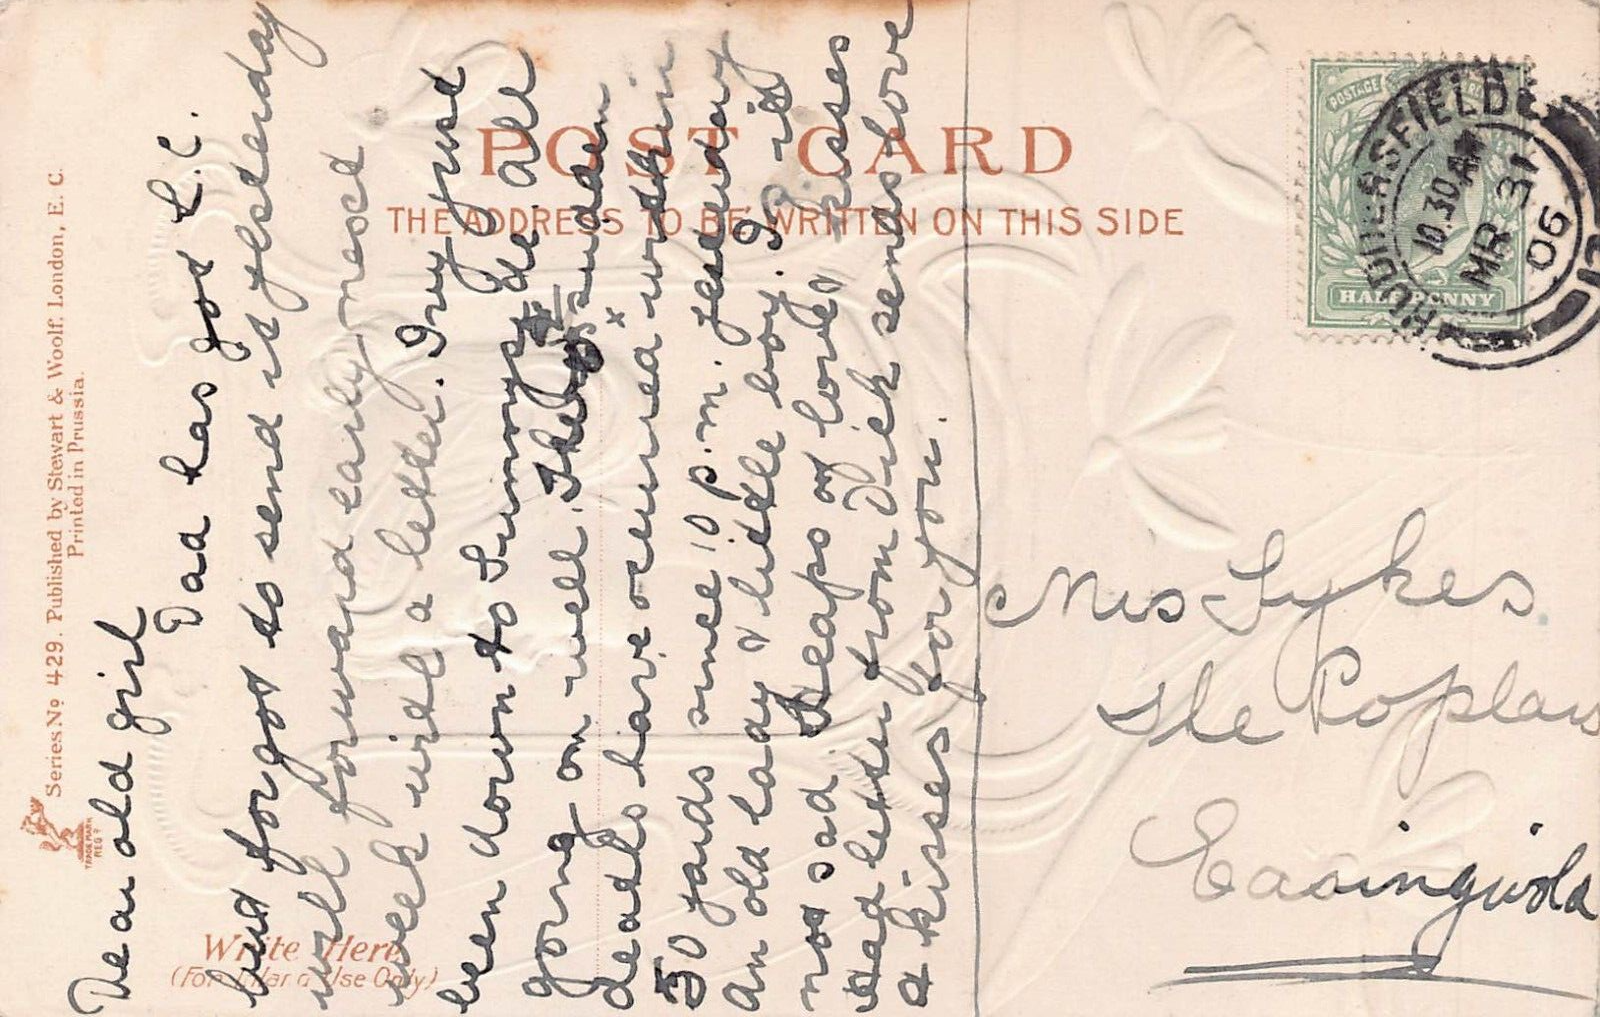 POST CARD
THE ADDRESS TO BE WRITTEN ON THIS SIDE
Series No 429. Published by Stewart & Woolf, London, E. C.
Printed in Prussia.
TRADE MARK
REGD
Write Here
(For Inland Use Only)
POSTAGE
HALFPENNY
HUDDERSFIELD
10.30 AM
MR 31
06
Dear old girl
Dad has got L.C.
but forgot to send it yesterday
will forward early next
week with a letter. Ivy just
been down to Sunnys. all
going on well. sudden
deaths have occurred within
50 yards since 10 p.m. yesterday
An old lady & little boy. Is it
not sad Heaps of love & kisses
letter from Dick sends love
& kisses for you.
Mrs Sykes
The Poplars
Easingwold